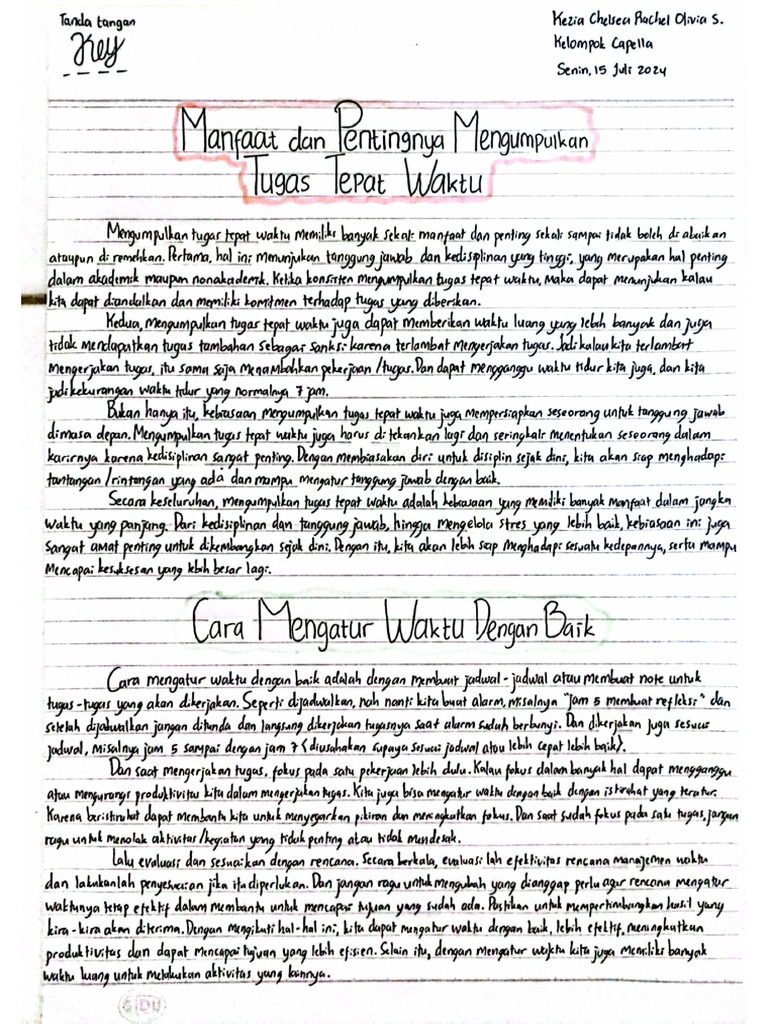 Tanda tangan
Key
Kezia Chelsea Rachel Olivia S.
Kelompok Capella
Senin, 15 Juli 2024
Manfaat dan Pentingnya Mengumpulkan
Tugas Tepat Waktu
Mengumpulkan tugas tepat waktu memiliki banyak sekali manfaat dan penting sekali sampai tidak boleh di abaikan
ataupun di remehkan. Pertama, hal ini menunjukan tanggung jawab dan kedisplinan yang tinggi, yang merupakan hal penting
dalam akademik maupun nonakademik. Ketika konsisten mengumpulkan tugas tepat waktu, Maka dapat menunjukan kalau
kita dapat diandalkan dan memiliki komitmen terhadap tugas yang diberikan.
Kedua, mengumpulkan tugas tepat waktu juga dapat memberikan waktu luang yang lebih banyak dan juga
tidak mendapatkan tugas tambahan sebagai sanksi karena terlambat mengerjakan tugas. Jadi kalau kita terlambat
mengerjakan tugas, itu sama saja menambahkan pekerjaan/tugas. Dan dapat mengganggu waktu tidur kita juga, dan kita
jadi kekurangan waktu tidur yang normalnya 7 jam.
Bukan hanya itu, kebiasaan mengumpulkan tugas tepat waktu juga mempersiapkan seseorang untuk tanggung jawab
dimasa depan. Mengumpulkan tugas tepat waktu juga harus di tekankan lagi dan seringkali menentukan seseorang dalam
karirnya karena kedisiplinan sangat penting. Dengan membiasakan diri untuk disiplin sejak dini, kita akan siap menghadapi
tantangan/rintangan yang ada dan mampu mengatur tanggung jawab dengan baik.
Secara keseluruhan, mengumpulkan tugas tepat waktu adalah kebiasaan yang memiliki banyak manfaat dalam jangka
waktu yang panjang. Dari kedisiplinan dan tanggung jawab, hingga mengelola stres yang lebih baik, kebiasaan ini juga
sangat amat penting untuk dikembangkan sejak dini. Dengan itu, kita akan lebih siap menghadapi sesuatu kedepannya, serta mampu
mencapai kesuksesan yang lebih besar lagi.
Cara Mengatur Waktu Dengan Baik
Cara mengatur waktu dengan baik adalah dengan membuat jadwal-jadwal atau membuat note untuk
tugas-tugas yang akan dikerjakan. Seperti dijadwalkan, nah nanti kita buat alarm, misalnya "jam 5 membuat refleksi" dan
setelah dijadwalkan jangan ditunda dan langsung dikerjakan tugasnya saat alarm sudah berbunyi. Dan dikerjakan juga sesuai
jadwal, misalnya jam 5 sampai dengan jam 7 (diusahakan supaya sesuai jadwal atau lebih cepat lebih baik).
Dan saat mengerjakan tugas, fokus pada satu pekerjaan lebih dulu. Kalau fokus dalam banyak hal dapat mengganggu
atau mengurangi produktivitas kita dalam mengerjakan tugas. Kita juga bisa mengatur waktu dengan baik dengan istirahat yang teratur.
Karena beristirahat dapat membantu kita untuk menyegarkan pikiran dan meningkatkan fokus. Dan saat sudah fokus pada satu tugas, jangan
ragu untuk menolak aktivitas/kegiatan yang tidak penting atau tidak mendesak.
Lalu evaluasi dan sesuaikan dengan rencana. Secara berkala, evaluasi lah efektivitas rencana manajemen waktu
dan lakukanlah penyesuaian jika itu diperlukan. Dan jangan ragu untuk mengubah yang dianggap perlu agar rencana mengatur
waktunya tetap efektif dalam membantu untuk mencapai tujuan yang sudah ada. Pastikan untuk mempertimbangkan hasil yang
kira-kira akan diterima. Dengan mengikuti hal-hal ini, kita dapat mengatur waktu dengan baik, lebih efektif, meningkatkan
produktivitas dan dapat mencapai tujuan yang lebih efisien. Selain itu, dengan mengatur waktu kita juga memiliki banyak
waktu luang untuk melakukan aktivitas yang lainnya.
SIDU